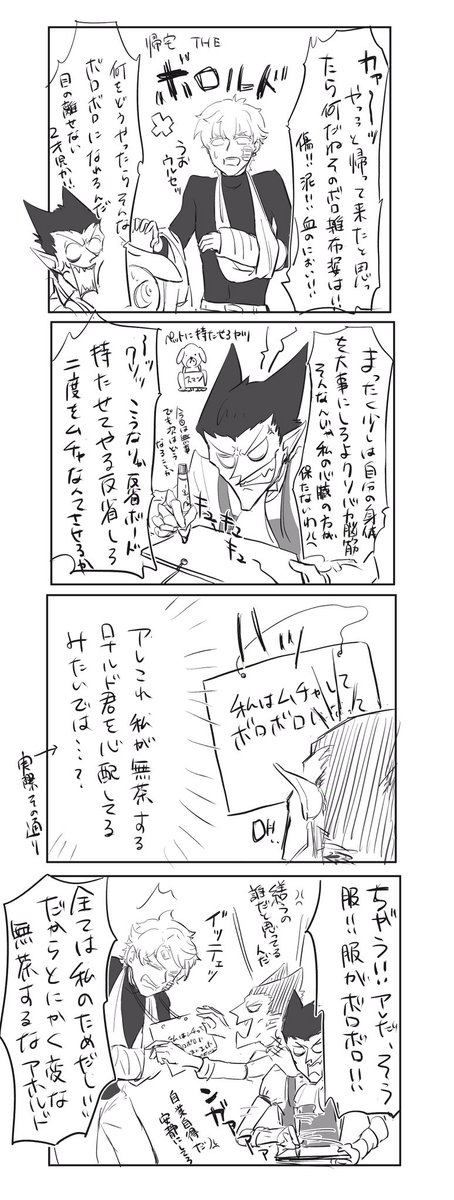 カァ〜〜ッ
やっっと帰って来たと思っ
たら何だねそのボロ雑布姿は!!
傷!!泥!!!血のにおい!!!
帰宅 THE
ボロルド
うお
ウルセッ
何をどうやったらそんな
ボロボロになれるんだ
目の離せない
2才児か!!
まったく少しは自分の身体
を大事にしろよクソバカ脳筋
そんなんじゃ私の心臓の方が
保たないわ
ペットに持たせるヤツ
スマン
今回は無事
でも次はどう
なることか
キュ
キュ
キュ
こうなりゃ反省ボード
持たせてやる反省しろ
二度とムチャなんてさせるか
バッ
私はムチャして
ボロボロに
OH..
アレこれ 私が無茶する
ロナルド君を心配してる
みたいでは…?
実際その通り
ちがう!!アレだ、そう
服!!!服がボロボロ!!
繕うの
誰だと思ってる
んだ
イッテェッ
自業自得だ
安静にしてろ
ンガァァァ
全ては私のためだし!!!
だからとにかく変な
無茶するな
アホルド